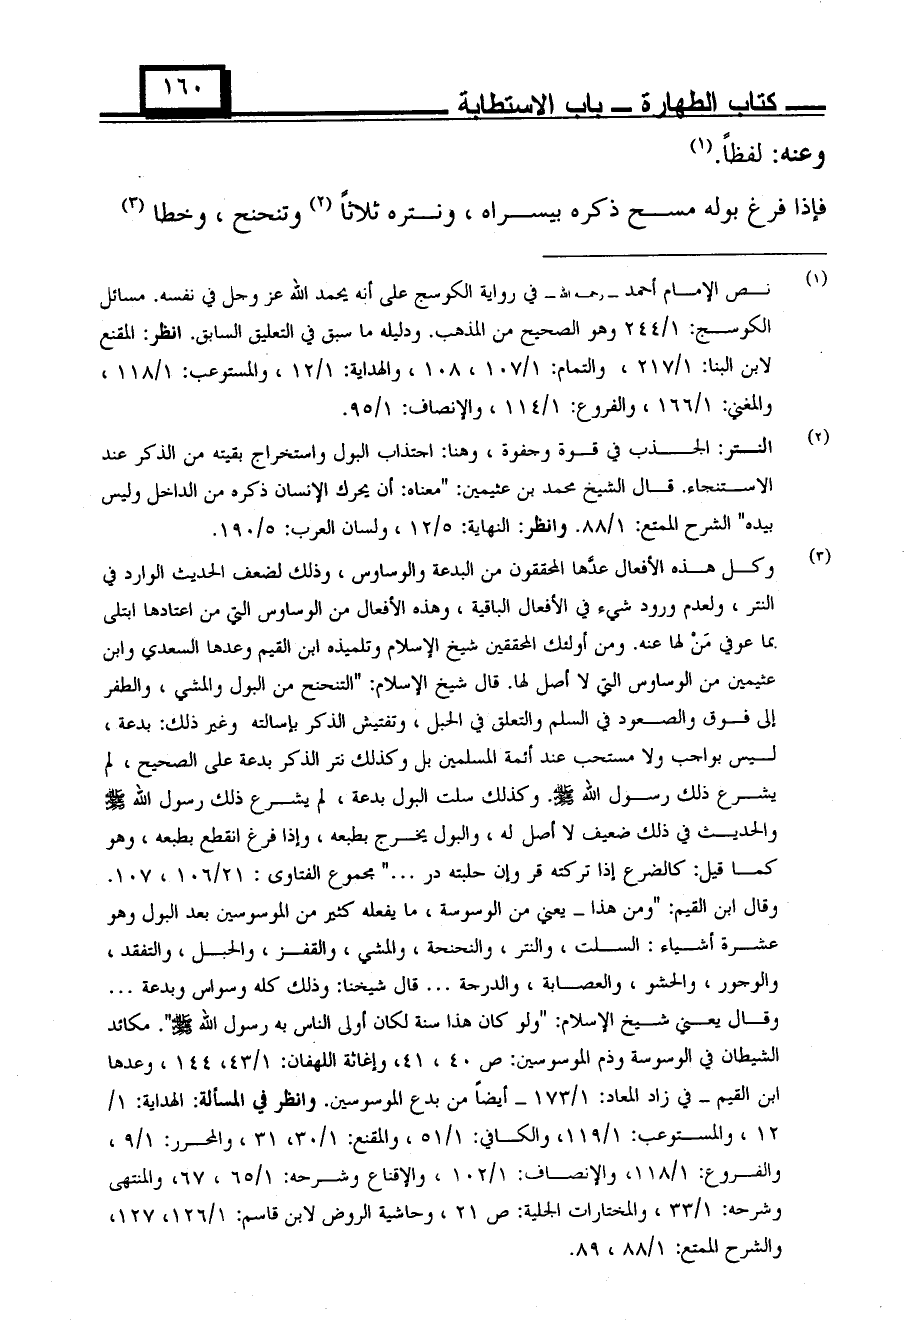 ١٦٠
كتاب الطهارة – باب الاستطابة
وعنه: لفظاً.(١)
فإذا فرغ بوله مسح ذكره بيسراه ، ونتره ثلاثاً (٢) وتنحنح ، وخطا (٣)
(١) نص الإمام أحمد – رحمه الله – في رواية الكوسج على أنه يحمد الله عز وجل في نفسه. مسائل
الكوسج: ٢٤٤/١ وهو الصحيح من المذهب. ودليله ما سبق في التعليق السابق. انظر: المقنع
لابن البنا: ٢١٧/١ ، والتمام: ١٠٧/١ ، ١٠٨ ، والهداية: ١٢/١ ، والمستوعب: ١١٨/١ ،
والمغني: ١٦٦/١ ، والفروع: ١١٤/١ ، والإنصاف: ٩٥/١.
(٢) النتر: الجذب في قوة وجفوة ، وهنا: اجتذاب البول واستخراج بقيته من الذكر عند
الاستنجاء. قال الشيخ محمد بن عثيمين: "معناه: أن يحرك الإنسان ذكره من الداخل وليس
بيده" الشرح الممتع: ٨٨/١. وانظر: النهاية: ١٢/٥ ، ولسان العرب: ١٩٠/٥.
(٣) وكل هذه الأفعال عدَّها المحققون من البدعة والوساوس ، وذلك لضعف الحديث الوارد في
النتر ، ولعدم ورود شيء في الأفعال الباقية ، وهذه الأفعال من الوساوس التي من اعتادها ابتلى
بما عوفي مَنْ لها عنه. ومن أولئك المحققين شيخ الإسلام وتلميذه ابن القيم وعدها السعدي وابن
عثيمين من الوساوس التي لا أصل لها. قال شيخ الإسلام: "التنحنح من البول والمشي ، والطفر
إلى فوق والصعود في السلم والتعلق في الحبل ، وتفتيش الذكر بإسالته وغير ذلك: بدعة ،
ليس بواجب ولا مستحب عند أئمة المسلمين بل وكذلك نتر الذكر بدعة على الصحيح ، لم
يشرع ذلك رسول الله ﷺ. وكذلك سلت البول بدعة ، لم يشرع ذلك رسول الله ﷺ
والحديث في ذلك ضعيف لا أصل له ، والبول يخرج بطبعه ، وإذا فرغ انقطع بطبعه ، وهو
كما قيل: كالضرع إذا تركته قر وإن حلبته در ..." مجموع الفتاوى : ١٠٦/٢١ ، ١٠٧.
وقال ابن القيم: "ومن هذا – يعني من الوسوسة ، ما يفعله كثير من الموسوسين بعد البول وهو
عشرة أشياء : السلت ، والنتر ، والنحنحة ، والمشي ، والقفز ، والحبل ، والتفقد ،
والوجور ، والحشو ، والعصابة ، والدرجة ... قال شيخنا: وذلك كله وسواس وبدعة ...
وقال يعني شيخ الإسلام: "ولو كان هذا سنة لكان أولى الناس به رسول الله ﷺ". مكائد
الشيطان في الوسوسة وذم الموسوسين: ص ٤٠ ، ٤١، وإغاثة اللهفان: ٤٣/١، ١٤٤ ، وعدها
ابن القيم – في زاد المعاد: ١٧٣/١ – أيضاً من بدع الموسوسين. وانظر في المسألة: الهداية: ١/
١٢ ، والمستوعب: ١١٩/١، والكافي: ٥١/١ ، والمقنع: ٣٠/١، ٣١ ، والمحرر: ٩/١ ،
والفروع: ١١٨/١، والإنصاف: ١٠٢/١ ، والإقناع وشرحه: ٦٥/١ ، ٦٧، والمنتهى
وشرحه: ٣٣/١ ، والمختارات الجلية: ص ٢١ ، وحاشية الروض لابن قاسم: ١٢٦/١، ١٢٧،
والشرح الممتع: ٨٨/١ ، ٨٩.